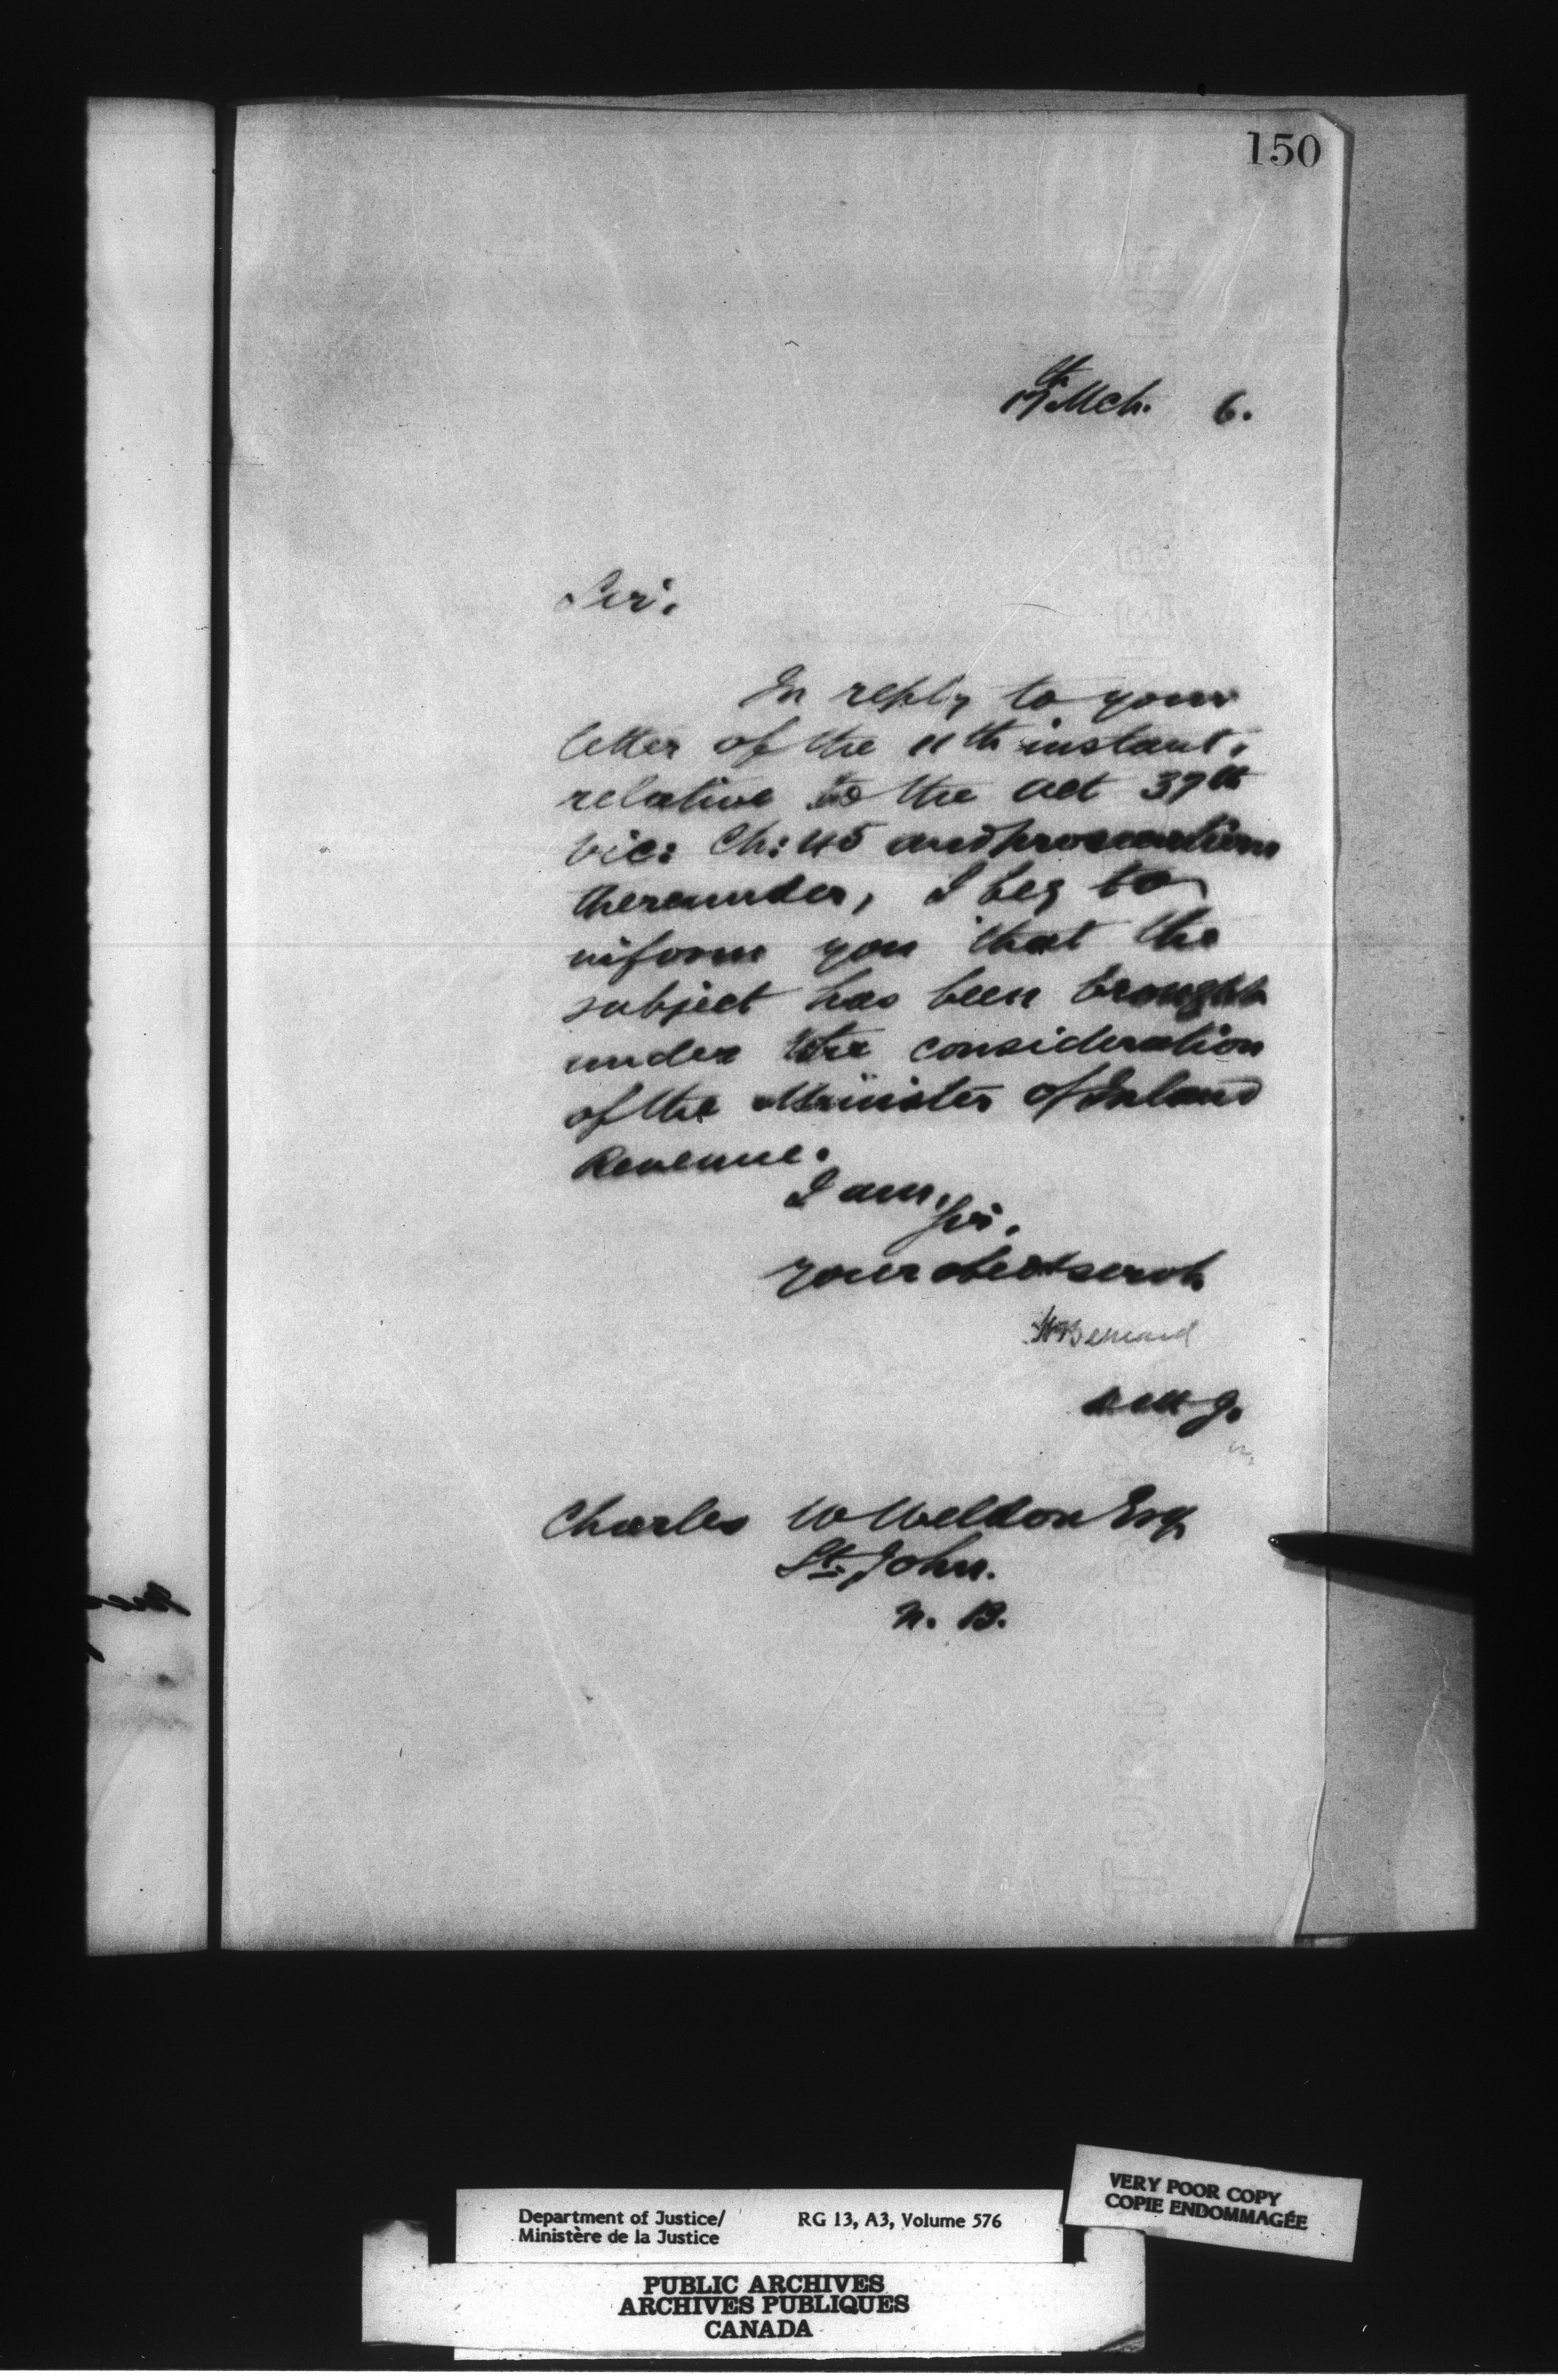 150
17th Mch. 6.
Sir,
In reply to your
letter of the 11th instant,
relative to the Act 37th
Vic: Ch: 45 and prosecutions
thereunder, I beg to
inform you that the
subject has been brought
under the consideration
of the Minister of Inland
Revenue.
I am,
Sir,
Your obedt servt
H Bernard
D M J.
Charles W Weldon Esq
St. John.
N. B.
Department of Justice/
Ministère de la Justice
RG 13, A3, Volume 576
VERY POOR COPY
COPIE ENDOMMAGÉE
PUBLIC ARCHIVES
ARCHIVES PUBLIQUES
CANADA